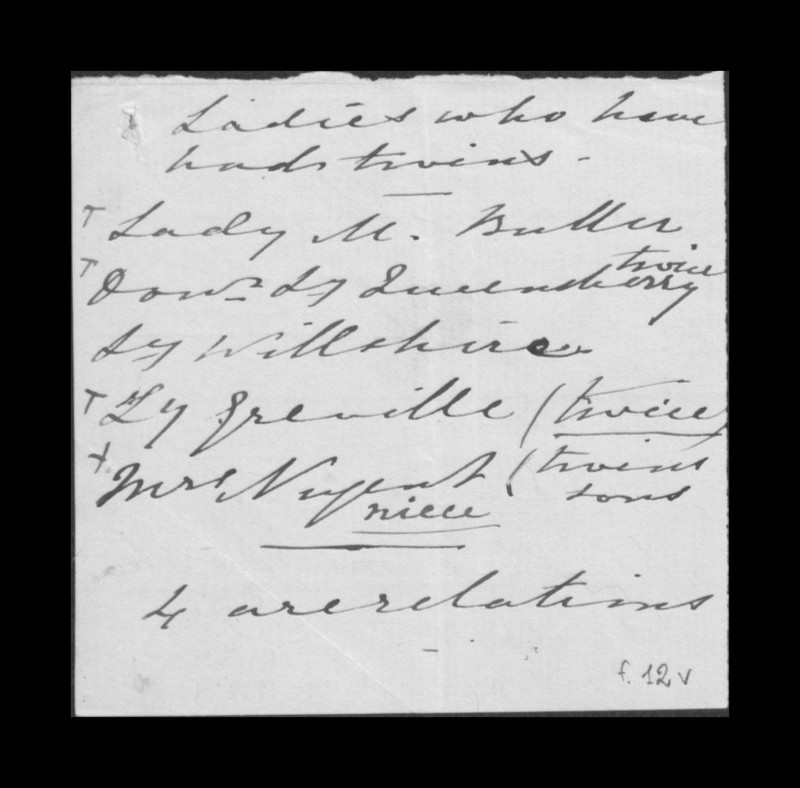 Ladies who have
had twins -
T Lady M. Butler
T Dowr Ly Queensberry twice
Ly Willshire
T Ly Greville (twice)
+ Mrs Nugent (twins
niece sons
4 are relations
f. 12 v